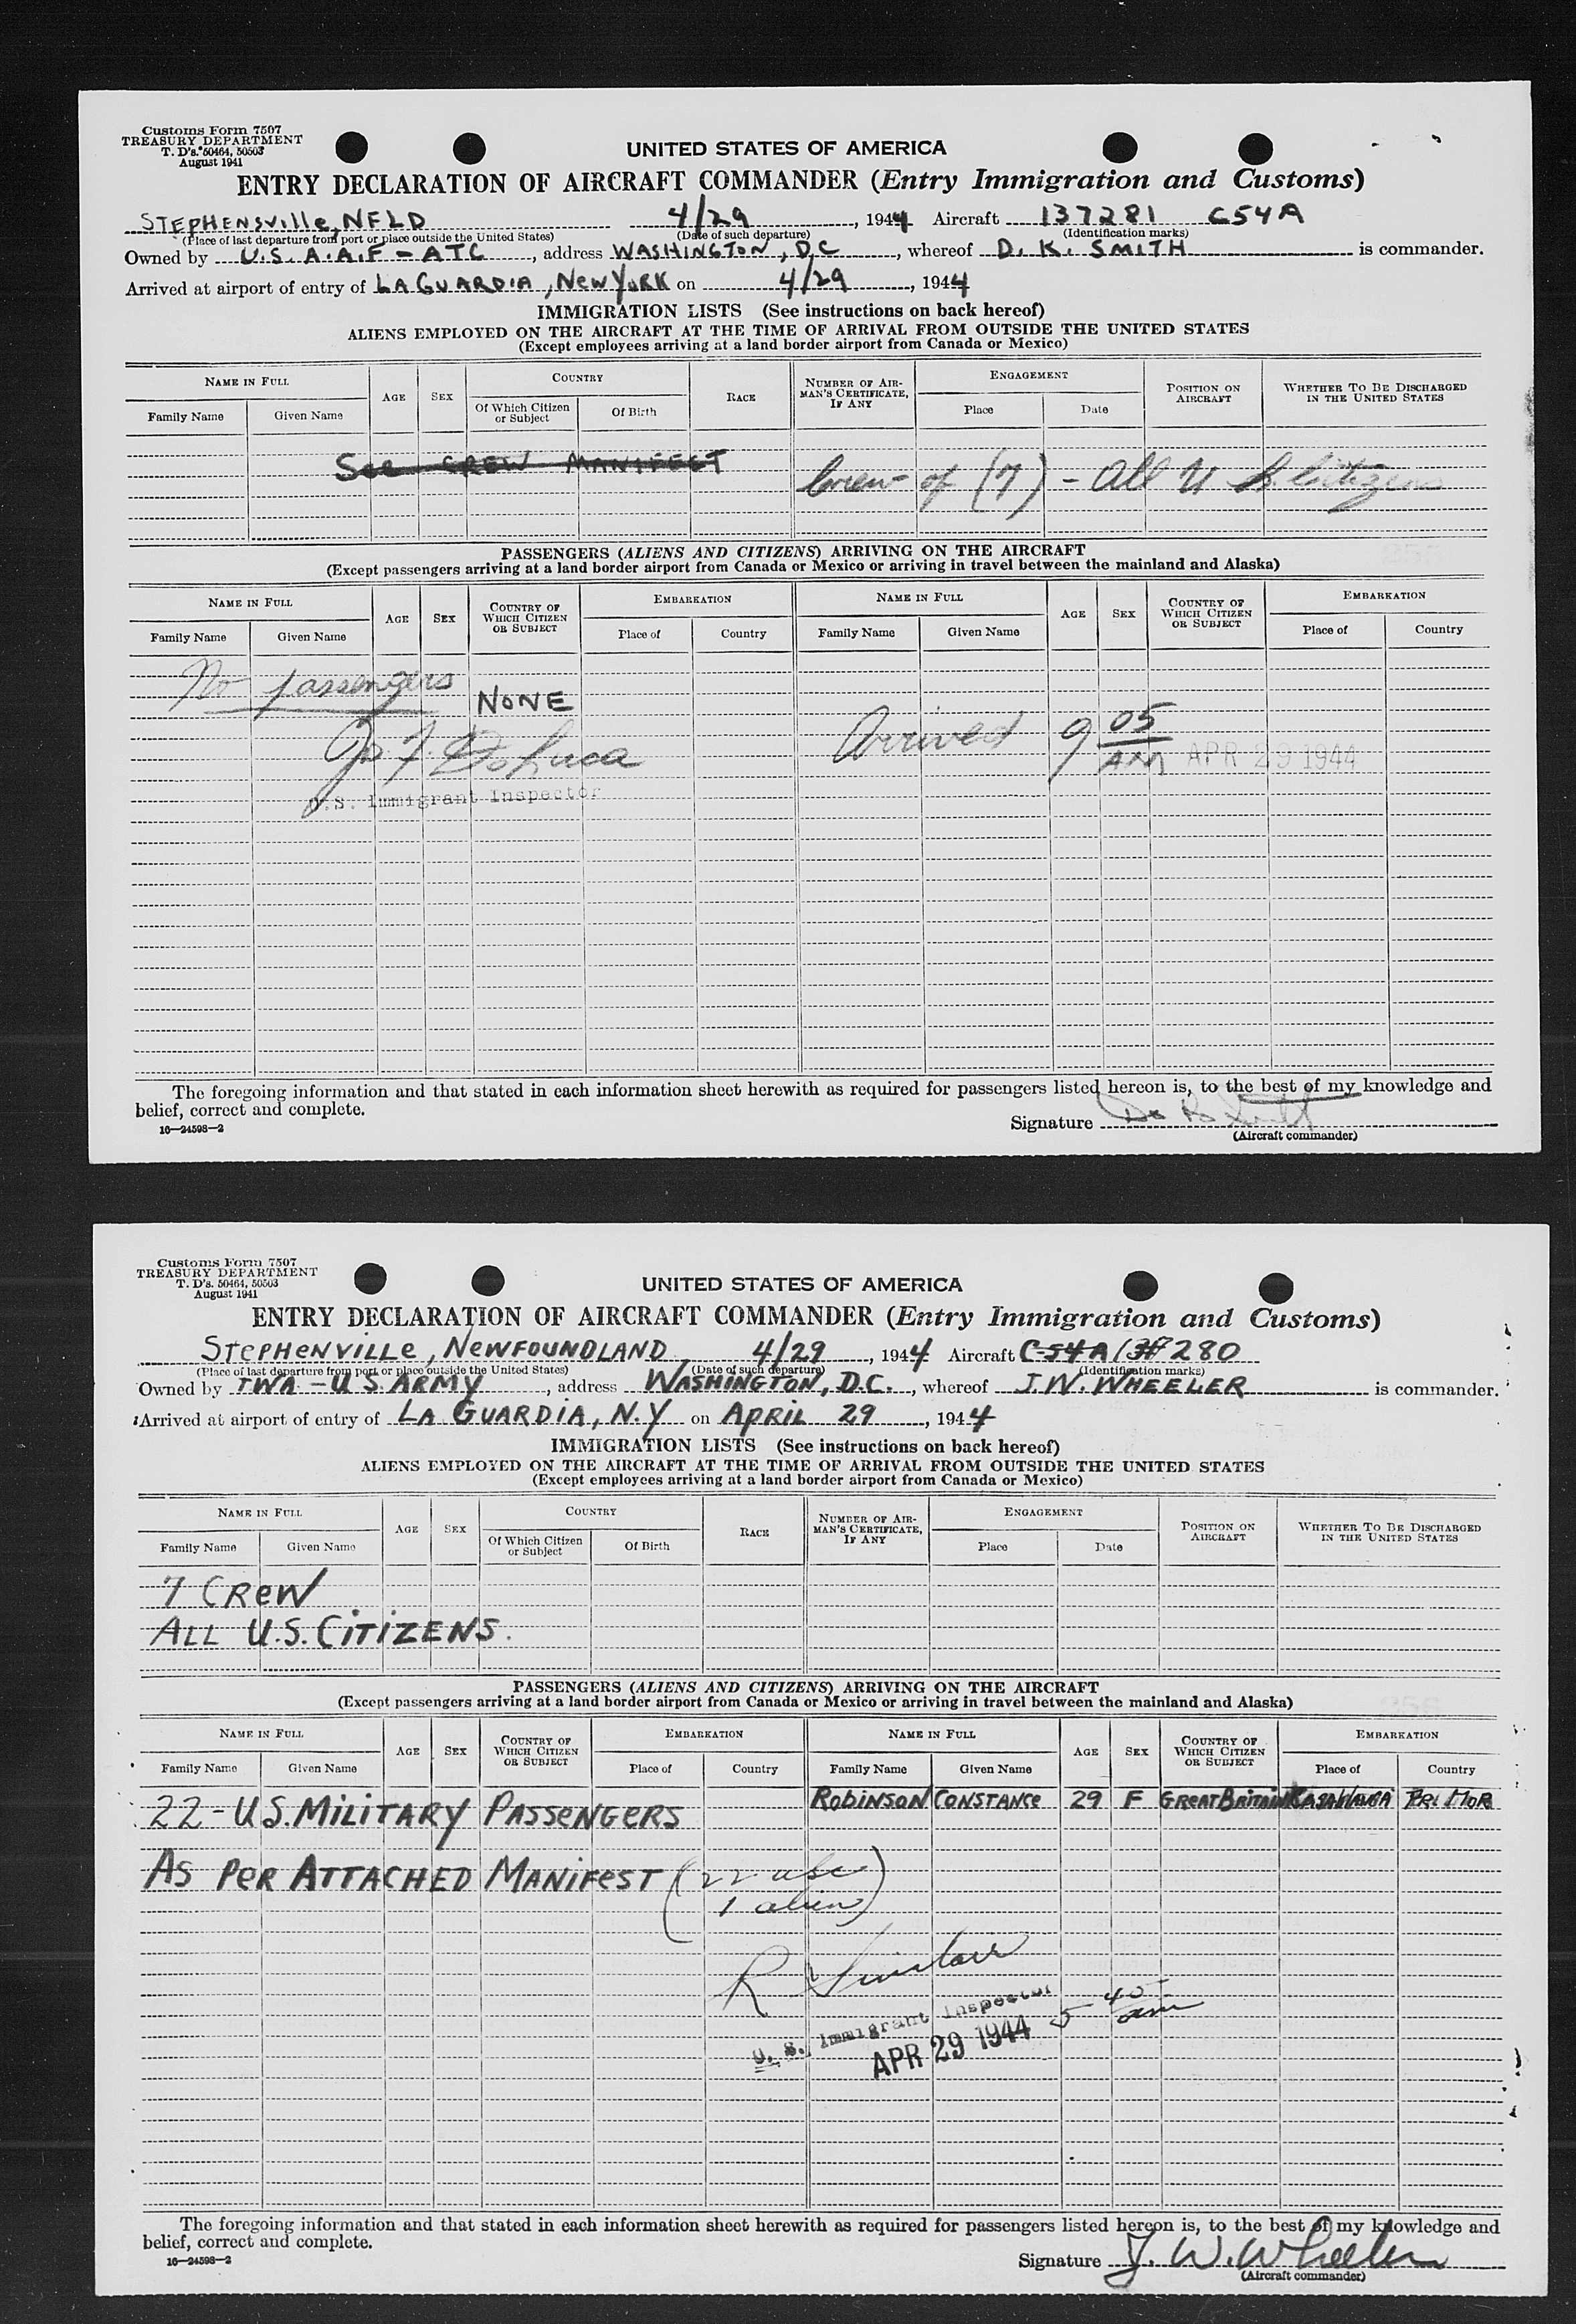 Customs Form 7507
TREASURY DEPARTMENT
T. D's. 50464, 50503
August 1941
UNITED STATES OF AMERICA
ENTRY DECLARATION OF AIRCRAFT COMMANDER (Entry Immigration and Customs)
STEPHENSVille, NFLD 4/29, 1944 Aircraft 137281 C54A
(Place of last departure from port or place outside the United States) (Date of such departure) (Identification marks)
Owned by U.S.A.A.F - ATC, address WASHINGTON, DC, whereof D. K. SMITH is commander.
Arrived at airport of entry of LA GUARDIA, NEW YORK on 4/29, 1944
IMMIGRATION LISTS (See instructions on back hereof)
ALIENS EMPLOYED ON THE AIRCRAFT AT THE TIME OF ARRIVAL FROM OUTSIDE THE UNITED STATES
(Except employees arriving at a land border airport from Canada or Mexico)
NAME IN FULL AGE SEX COUNTRY RACE NUMBER OF AIRMAN'S CERTIFICATE, IF ANY ENGAGEMENT POSITION ON AIRCRAFT WHETHER TO BE DISCHARGED IN THE UNITED STATES
Family Name Given Name Of Which Citizen or Subject Of Birth Place Date
See CREW MANIFEST Crew of (7) - All U S. Citizens
PASSENGERS (ALIENS AND CITIZENS) ARRIVING ON THE AIRCRAFT
(Except passengers arriving at a land border airport from Canada or Mexico or arriving in travel between the mainland and Alaska)
NAME IN FULL AGE SEX COUNTRY OF WHICH CITIZEN OR SUBJECT EMBARKATION NAME IN FULL AGE SEX COUNTRY OF WHICH CITIZEN OR SUBJECT EMBARKATION
Family Name Given Name Place of Country Family Name Given Name Place of Country
No passengers NONE
Arrived 9 05 AM APR 29 1944
U.S. Immigrant Inspector
The foregoing information and that stated in each information sheet herewith as required for passengers listed hereon is, to the best of my knowledge and
belief, correct and complete.
Signature
16—24598—2 (Aircraft commander)
Customs Form 7507
TREASURY DEPARTMENT
T. D's. 50464, 50503
August 1941
UNITED STATES OF AMERICA
ENTRY DECLARATION OF AIRCRAFT COMMANDER (Entry Immigration and Customs)
STEPHENVILLE, NEWFOUNDLAND 4/29, 1944 Aircraft C-54A 137280
(Place of last departure from port or place outside the United States) (Date of such departure) (Identification marks)
Owned by TWA - U S. ARMY, address WASHINGTON, D.C., whereof J. W. WHEELER is commander.
Arrived at airport of entry of LA GUARDIA, N.Y on APRIL 29, 1944
IMMIGRATION LISTS (See instructions on back hereof)
ALIENS EMPLOYED ON THE AIRCRAFT AT THE TIME OF ARRIVAL FROM OUTSIDE THE UNITED STATES
(Except employees arriving at a land border airport from Canada or Mexico)
NAME IN FULL AGE SEX COUNTRY RACE NUMBER OF AIRMAN'S CERTIFICATE, IF ANY ENGAGEMENT POSITION ON AIRCRAFT WHETHER TO BE DISCHARGED IN THE UNITED STATES
Family Name Given Name Of Which Citizen or Subject Of Birth Place Date
7 CREW
ALL U.S. CITIZENS.
PASSENGERS (ALIENS AND CITIZENS) ARRIVING ON THE AIRCRAFT
(Except passengers arriving at a land border airport from Canada or Mexico or arriving in travel between the mainland and Alaska)
NAME IN FULL AGE SEX COUNTRY OF WHICH CITIZEN OR SUBJECT EMBARKATION NAME IN FULL AGE SEX COUNTRY OF WHICH CITIZEN OR SUBJECT EMBARKATION
Family Name Given Name Place of Country Family Name Given Name Place of Country
ROBINSON CONSTANCE 29 F GREAT BRITAIN FR. MOR
22 - U.S. MILITARY PASSENGERS
AS PER ATTACHED MANIFEST (22 usc
1 alien)
R Sinclair
U. S. Immigrant Inspector 5 40 am
APR 29 1944
The foregoing information and that stated in each information sheet herewith as required for passengers listed hereon is, to the best of my knowledge and
belief, correct and complete.
Signature J. W. Wheeler
16—24598—2 (Aircraft commander)